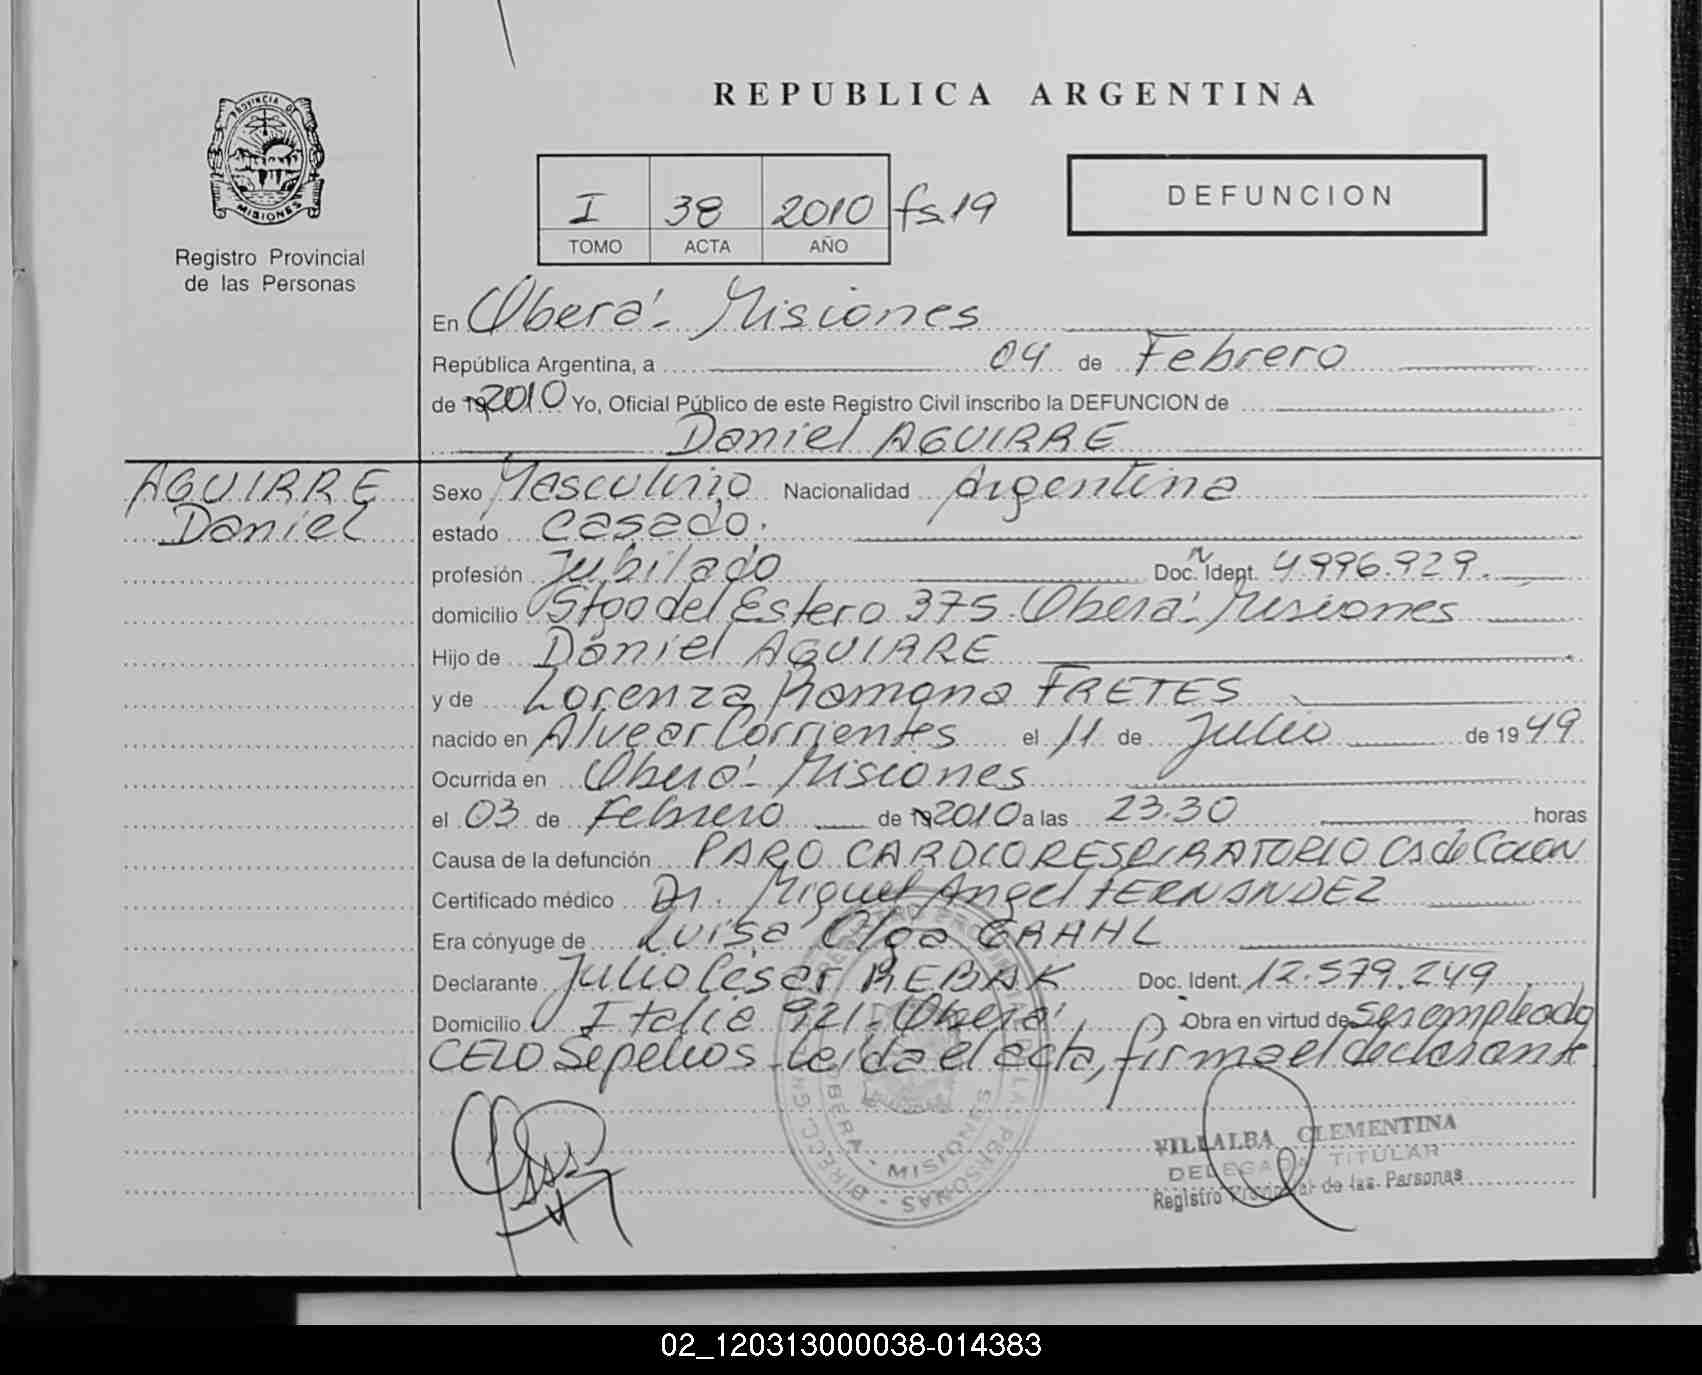 REPUBLICA ARGENTINA
PROVINCIA DE
MISIONES
Registro Provincial
de las Personas
I 38 2010 fs.19
TOMO ACTA AÑO
DEFUNCION
En Oberá - Misiones
República Argentina, a 04 de Febrero
de 19 2010 Yo, Oficial Público de este Registro Civil inscribo la DEFUNCION de
Daniel AGUIRRE
AGUIRRE
Daniel
Sexo Masculino Nacionalidad Argentina
estado casado.
profesión Jubilado Doc. Ident. 4996.929.
domicilio Stgo del Estero 375 - Oberá - Misiones
Hijo de Daniel AGUIRRE
y de Lorenza Ramona FRETES
nacido en Alvear Corrientes el 11 de Julio de 1949
Ocurrida en Oberá - Misiones
el 03 de Febrero de 19 2010 a las 23.30 horas
Causa de la defunción PARO CARDIORESPIRATORIO Ca de Colon
Certificado médico Dr. Miguel Angel FERNANDEZ
Era cónyuge de Luisa Olga GRAHL
Declarante Julio César REBAK Doc. Ident. 12.579.249
Domicilio Italia 921 - Oberá Obra en virtud de ser empleado
CELO Sepelios - Leída el acta, firma el declarante
OBERA - MISIONES
VILLALBA CLEMENTINA
DELEGADA TITULAR
Registro Provincial de las Personas
02_120313000038-014383